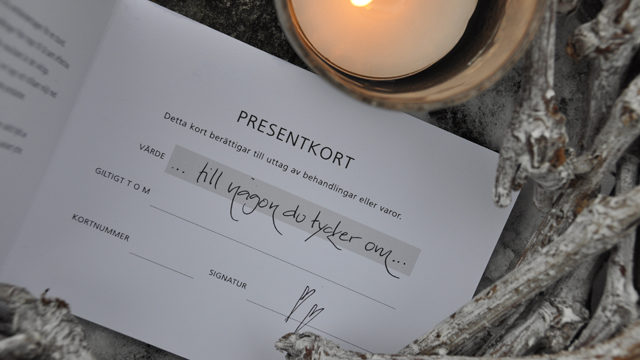 PRESENTKORT
Detta kort berättigar till uttag av behandlingar eller varor.
VÄRDE ... till någon du tycker om...
GILTIGT T O M
KORTNUMMER
SIGNATUR